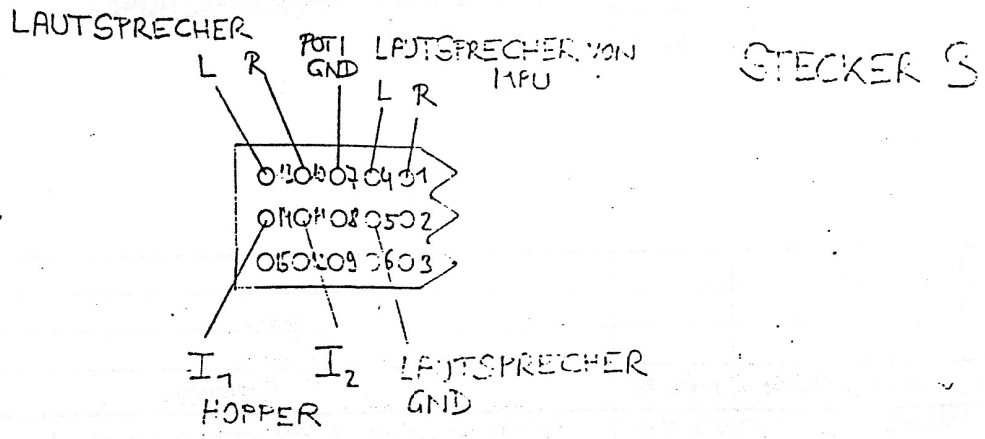 LAUTSPRECHER
L R
POTI
GND
LAUTSPRECHER VON
MFU
L R
STECKER S
13 10 7 4 1
14 11 8 5 2
15 12 9 6 3
I1 I2
HOPPER
LAUTSPRECHER
GND